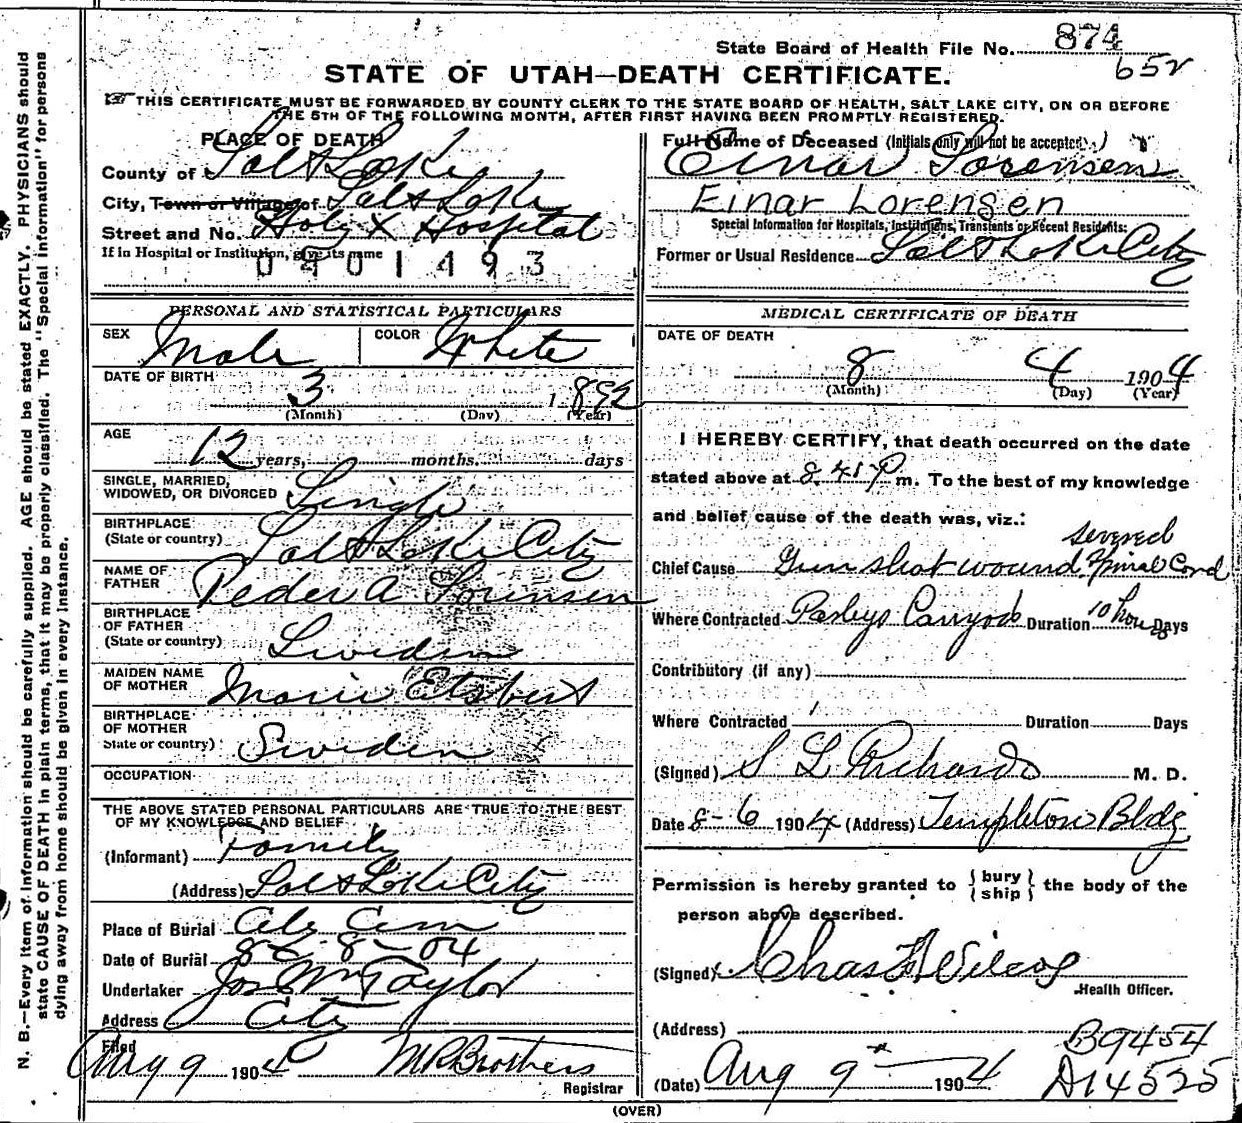 State Board of Health File No. 874
652
STATE OF UTAH—DEATH CERTIFICATE.
THIS CERTIFICATE MUST BE FORWARDED BY COUNTY CLERK TO THE STATE BOARD OF HEALTH, SALT LAKE CITY, ON OR BEFORE
THE 5TH OF THE FOLLOWING MONTH, AFTER FIRST HAVING BEEN PROMPTLY REGISTERED.
N. B.—Every item of information should be carefully supplied. AGE should be stated EXACTLY. PHYSICIANS should
state CAUSE OF DEATH in plain terms, that it may be properly classified. The "Special Information" for persons
dying away from home should be given in every instance.
PLACE OF DEATH
County of Salt Lake
City, Town or Village of Salt Lake
Street and No. Holy X Hospital
If in Hospital or Institution, give its name
0401493
PERSONAL AND STATISTICAL PARTICULARS
SEX Male COLOR White
DATE OF BIRTH 3 1892
(Month) (Day) (Year)
AGE
12 years, months, days
SINGLE, MARRIED,
WIDOWED, OR DIVORCED Single
BIRTHPLACE
(State or country) Salt Lake City
NAME OF
FATHER Peder A Sorensen
BIRTHPLACE
OF FATHER
(State or country) Sweden
MAIDEN NAME
OF MOTHER Marie
BIRTHPLACE
OF MOTHER
State or country) Sweden
OCCUPATION
THE ABOVE STATED PERSONAL PARTICULARS ARE TRUE TO THE BEST
OF MY KNOWLEDGE AND BELIEF
(Informant) Family
(Address) Salt Lake City
Place of Burial Cem
Date of Burial 8-8-04
Undertaker Jos Wm Taylor
Address City
Filed
Aug 9 1904 M R Brothers
Registrar
Full Name of Deceased (Initials only will not be accepted.)
Einar Sorensen
Einar Lorensen
Special Information for Hospitals, Institutions, Transients or Recent Residents:
Former or Usual Residence Salt Lake City
MEDICAL CERTIFICATE OF DEATH
DATE OF DEATH
8 4 1904
(Month) (Day) (Year)
I HEREBY CERTIFY, that death occurred on the date
stated above at 8.45 P m. To the best of my knowledge
and belief cause of the death was, viz.:
severed
Chief Cause Gun shot wound Spinal Cord
Where Contracted Parleys Canyon Duration 10 hours Days
Contributory (if any)
Where Contracted Duration Days
(Signed) S L Richards M. D.
Date 8-6 1904 (Address) Templeton Bldg
Permission is hereby granted to { bury / ship } the body of the
person above described.
(Signed) Chas F Wilcox
Health Officer.
(Address)
B9454
(Date) Aug 9 1904 A14525
(OVER)